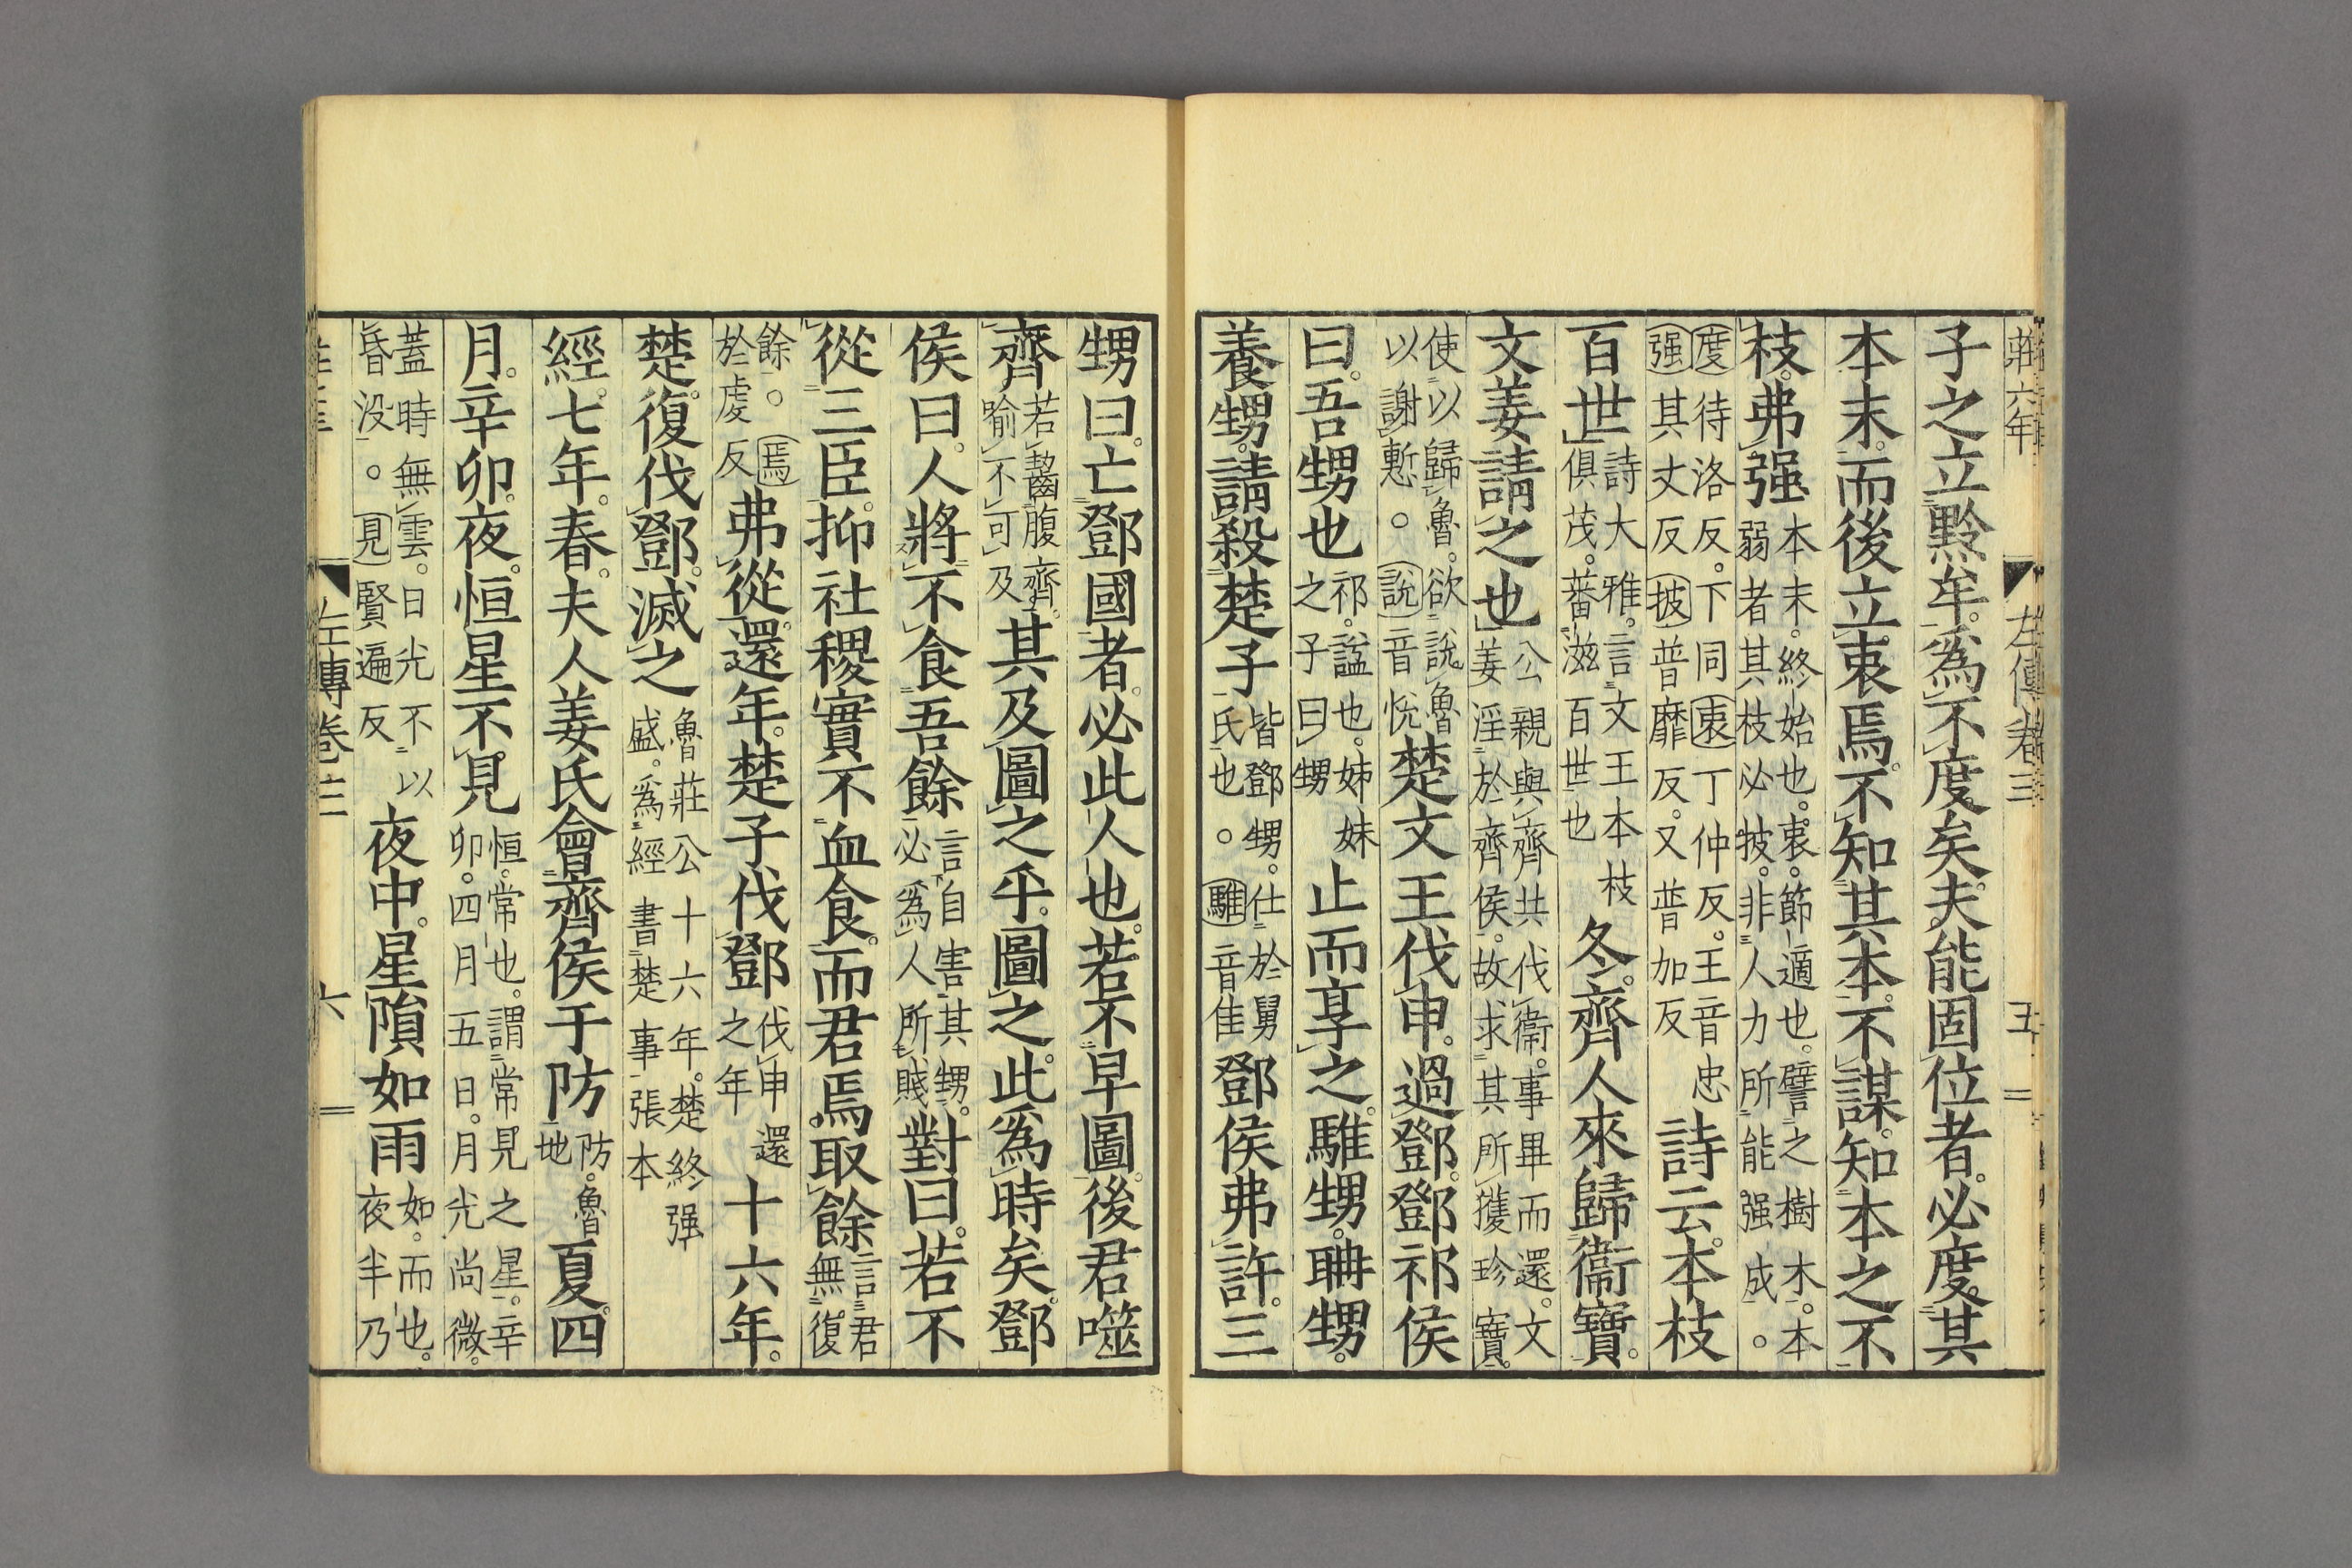 莊六年 左傳卷三 五
子之立黔牟。爲不度矣。夫能固位者。必度其
本末。而後立衷焉。不知其本。不謀。知本之不
枝。弗强本末。終始也。衷。節適也。譬之樹木。本弱者其枝必披。非人力所能强成。
度待洛反。下同衷丁仲反。王音忠强其丈反披普靡反。又普加反詩云。本枝
百世詩大雅。言文王本枝俱茂。蕃滋百世也冬。齊人來歸衞寶。
文姜請之也公親與齊共伐衞。事畢而還。文姜淫於齊侯。故求其所獲珍寶。
使以歸魯。欲說魯以謝慙。說音悅楚文王伐申。過鄧。鄧祁侯
曰。吾甥也祁。諡也。姊妹之子曰甥止而享之。騅甥。聃甥。
養甥。請殺楚子皆鄧甥。仕於舅氏也。騅音隹鄧侯弗許。三
甥曰。亡鄧國者。必此人也。若不早圖。後君噬
齊若齧腹齊。喻不可及其及圖之乎。圖之。此爲時矣。鄧
侯曰。人將不食吾餘言自害其甥。必爲人所賤對曰。若不
從三臣。抑社稷實不血食。而君焉取餘言君無復
餘。焉於虔反弗從。還年。楚子伐鄧伐申還之年十六年。
楚復伐鄧。滅之魯莊公十六年。楚終强盛。爲經書楚事張本
經。七年。春。夫人姜氏會齊侯于防防。魯地夏。四
月。辛卯。夜。恒星不見恒。常也。謂常見之星。辛卯。四月五日。月光尚微。
蓋時無雲。日光不以昏没。見賢遍反夜中。星隕如雨如。而也。夜半乃
左傳卷三 六